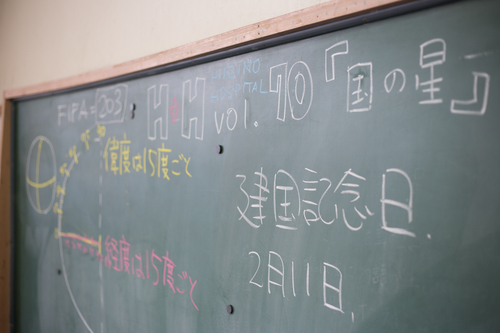 FIFA=203
H&H
vol.70『国の星』
偉度は15度ごと
経度は15度ごと
建国記念日.
2月11日.